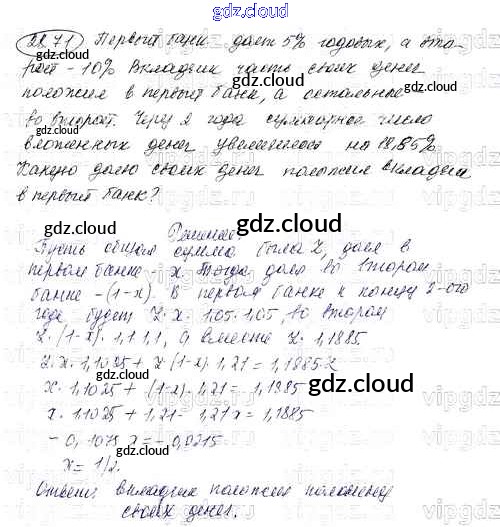 gdz.cloud
28.71 Первый банк дает 5% годовых, а вто-
рой - 10% Вкладчик часть своих денег
положил в первый банк, а остальные
во второй. Через 2 года суммарное число
вложенных денег увеличилось на 18,85%
Какую долю своих денег положил вкладчик
в первый банк?
Решение:
Пусть общая сумма была Z, доля в
первом банке - x. Тогда доля во втором
банке - (1-x). В первом банке к концу 2-ого
года будет Z·x·1.05·1.05, во втором
Z·(1-x)·1,1·1,1, а вместе Z·1,1885
Z·x·1,1025 + Z·(1-x)·1,21 = 1,1885·Z
x·1,1025 + (1-x)·1,21 = 1,1885
x·1,1025 + 1,21 - 1,21x = 1,1885
-0,1075 x = -0,0215
x = 1/2.
Ответ: вкладчик положил половину
своих денег.